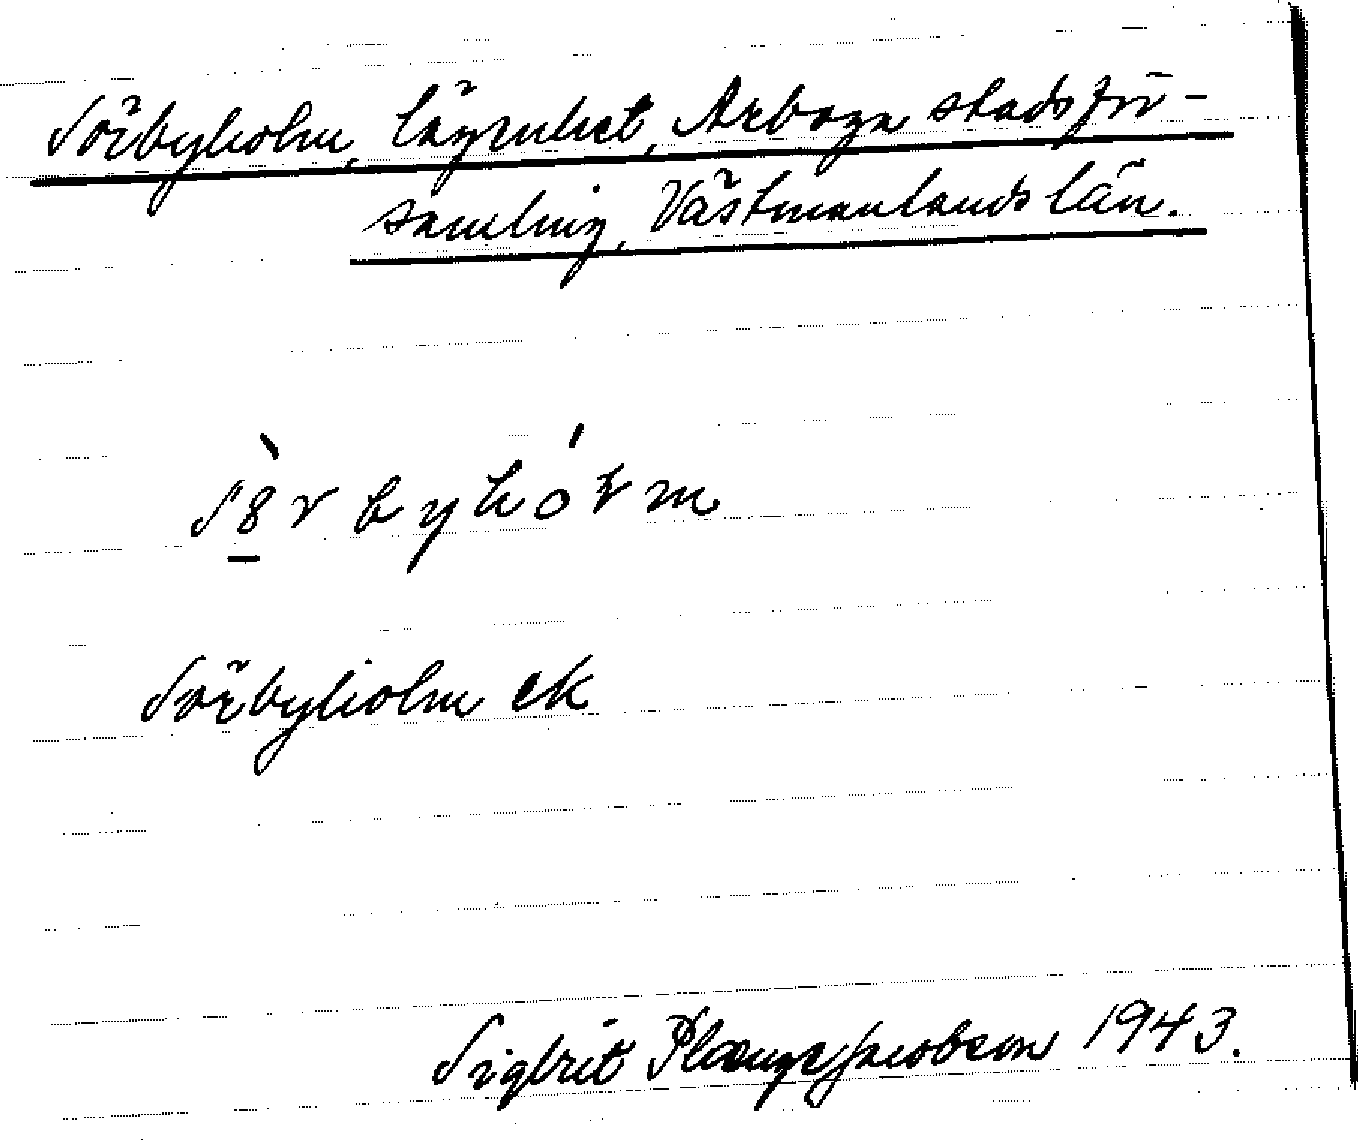 Sörbyholm, lägenhet, Arboga stadsför-
samling, Västmanlands län.
Sörbyholm ek
Sigbrit Plænge Jacobson 1943.